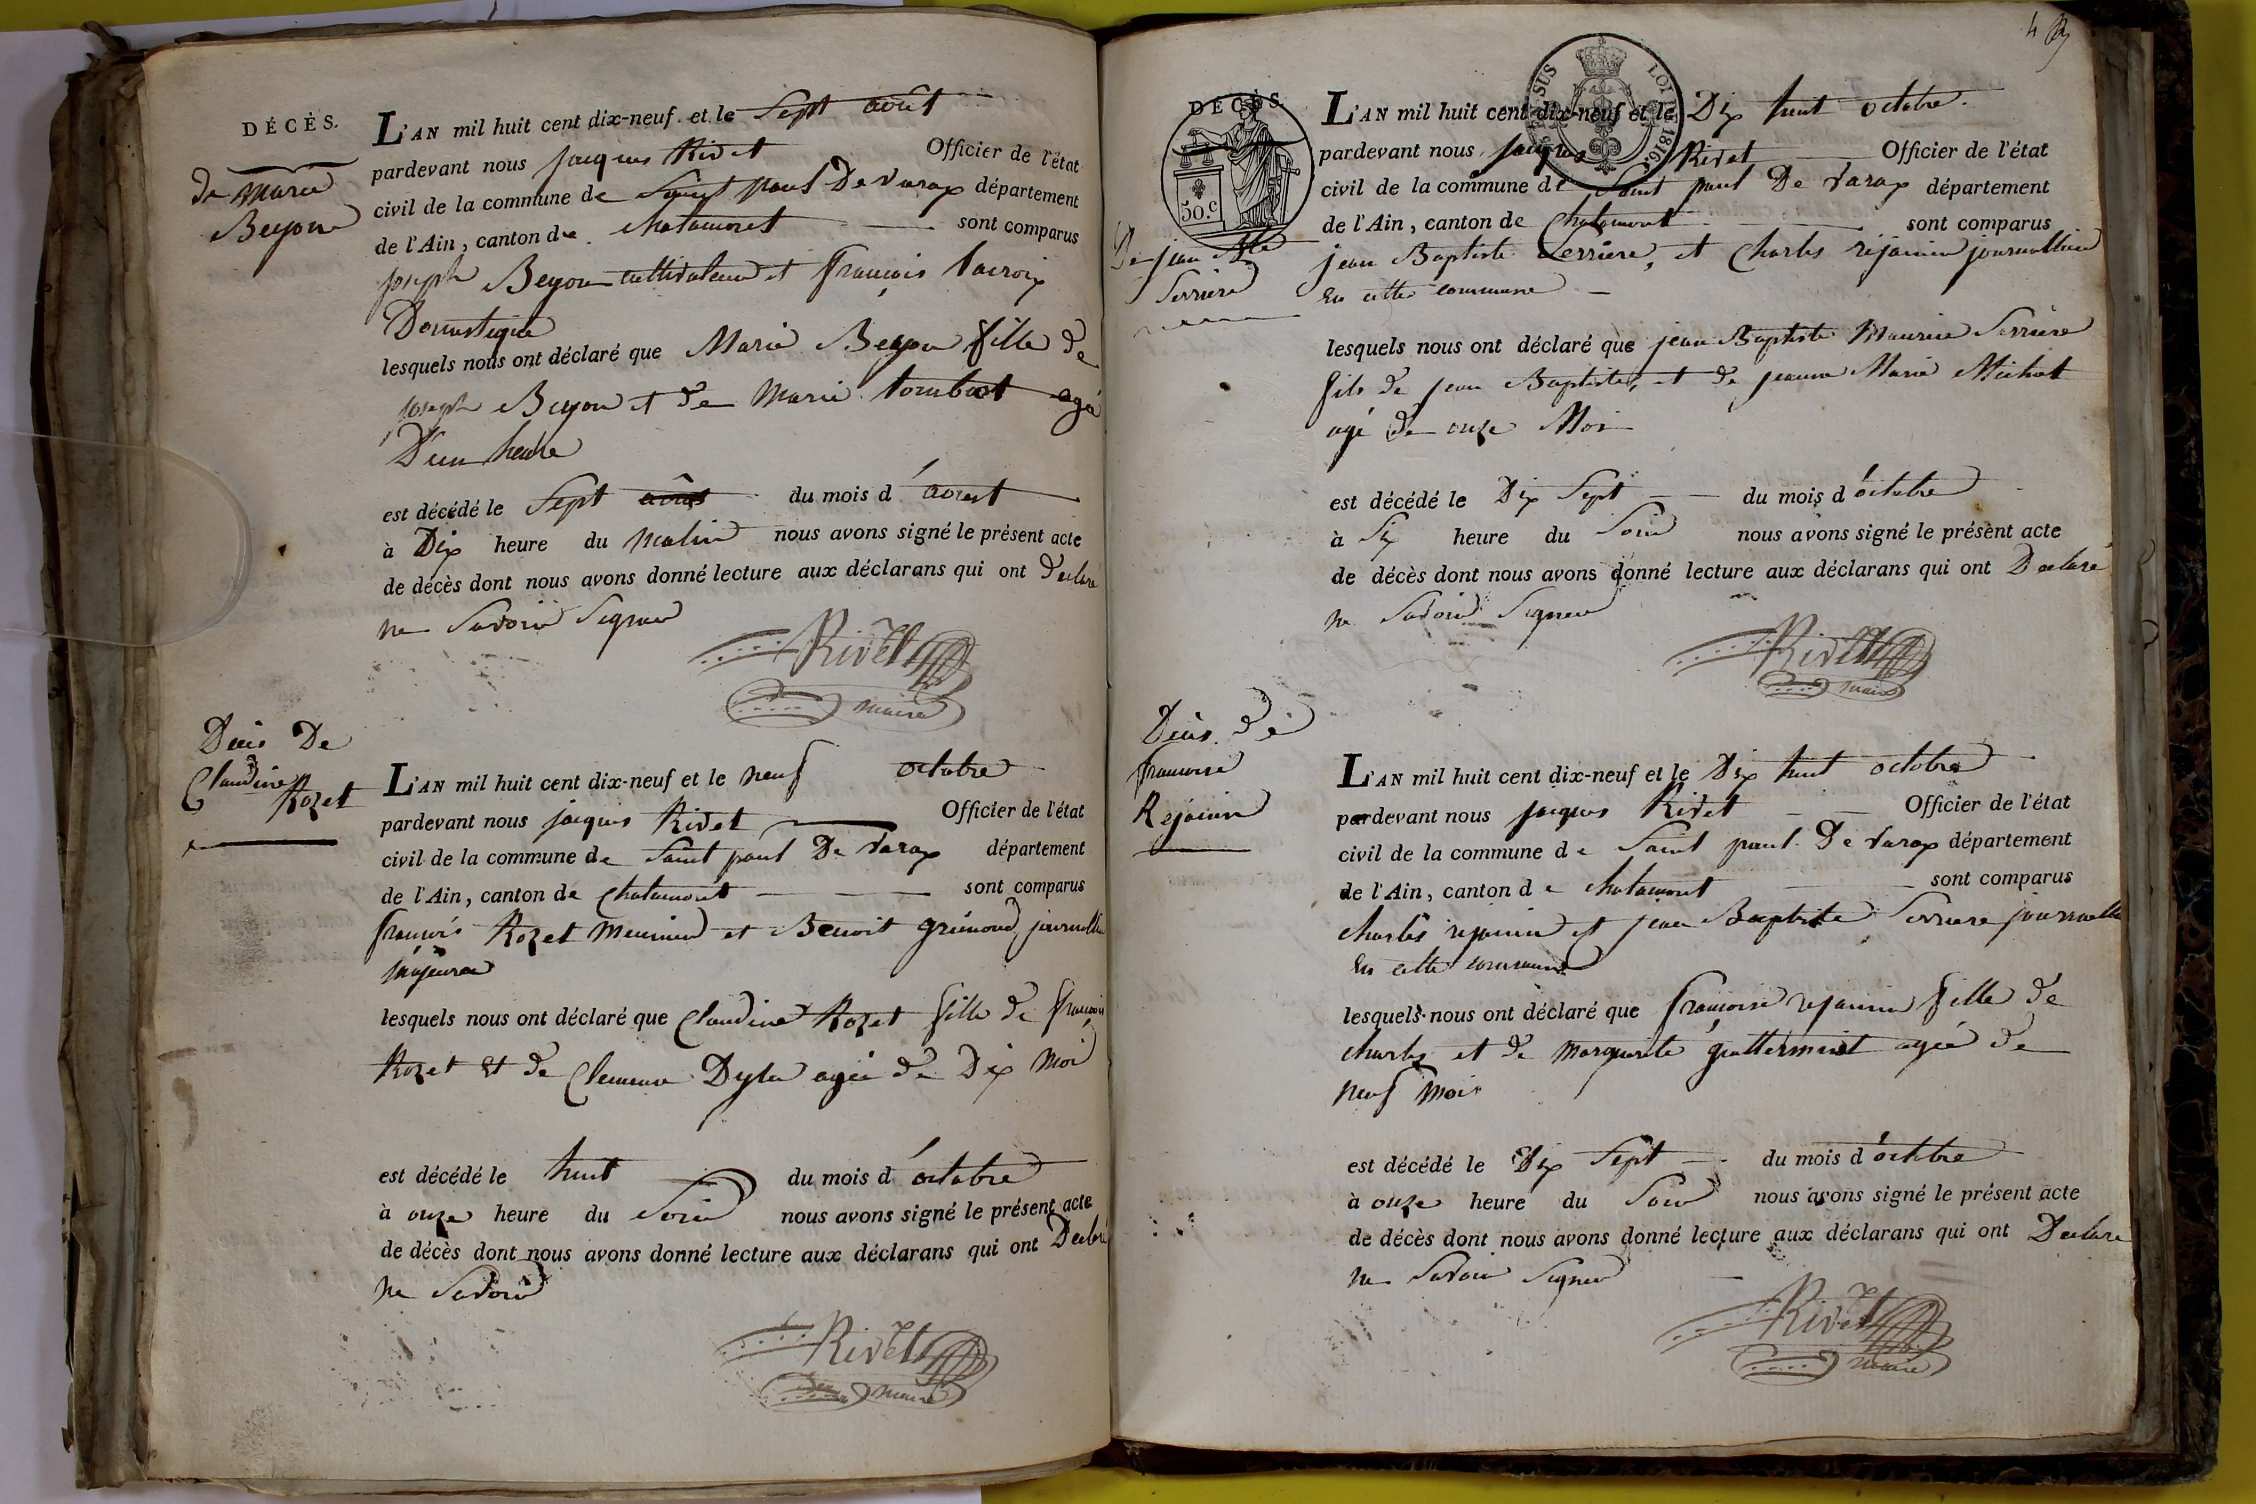 DÉCÈS.
de Marie
Beyon
L'AN mil huit cent dix-neuf et le Sept août
pardevant nous jacques Rivet Officier de l'état
civil de la commune de Saint paul De Varax département
de l'Ain, canton de chalamont sont comparus
joseph Beyon cultivateur et françois lacroix
Domestique
lesquels nous ont déclaré que Marie Beyon fille de
joseph Beyon et de Marie agé
D'un heure
est décédé le Sept du mois d'aoust
à Dix heure du matin nous avons signé le présent acte
de décès dont nous avons donné lecture aux déclarans qui ont Declaré
ne Savoir Signer
Rivet
maire
Décès De
Claudine
Rozet
L'AN mil huit cent dix-neuf et le neuf octobre
pardevant nous jacques Rivet Officier de l'état
civil de la commune de Saint paul De Varax département
de l'Ain, canton de Chalamont sont comparus
françois Rozet Meunier et Benoit journallier
lesquels nous ont déclaré que Claudine Rozet fille de françois
Rozet et de agée de Dix Moi
est décédé le huit du mois d'octobre
à onze heure du Soir nous avons signé le présent acte
de décès dont nous avons donné lecture aux déclarans qui ont Declaré
ne Savoir
Rivet
maire
4
DÉCÈS.
50.c
EN SUS
LOI DE 1816.
De jean Bte
Serriere
L'AN mil huit cent dix-neuf et le Dix huit octobre
pardevant nous jacques Rivet Officier de l'état
civil de la commune de Saint paul De Varax département
de l'Ain, canton de Chalamont sont comparus
jean Baptiste Serriere, et Charles rejanin journallier
En cette commune
lesquels nous ont déclaré que jean Baptiste Maurice Serriere
fils de jean Baptiste, et de jeanne Marie Michat
agé de onze Moi
est décédé le Dix Sept du mois d'octobre
à Six heure du Soir nous avons signé le présent acte
de décès dont nous avons donné lecture aux déclarans qui ont Declaré
ne Savoir Signer
Rivet
maire
Décès de
francoise
Rejanin
L'AN mil huit cent dix-neuf et le Dix huit octobre
pardevant nous jacques Rivet Officier de l'état
civil de la commune de Saint paul De Varax département
de l'Ain, canton de chalamont sont comparus
charles rejanin et jean Baptiste Serriere journallier
En cette commune
lesquels nous ont déclaré que françoise rejanin fille de
charles et de Marguerite agée de
neuf mois
est décédé le Dix Sept du mois d'octobre
à onze heure du Soir nous avons signé le présent acte
de décès dont nous avons donné lecture aux déclarans qui ont Declaré
ne Savoir Signer
Rivet
maire